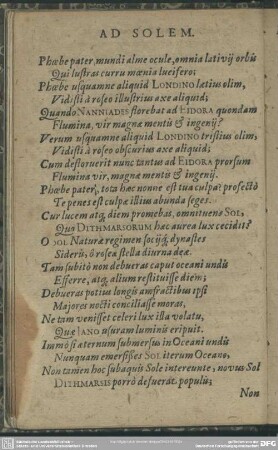 AD SOLEM.
Phœbe pater, mundi alme ocule, omnia lativij orbis
Qui lustras curru mœnia lucifero;
Phœbe usquamne aliquid LONDINO lætius olim,
Vidisti à roseo illustrius axe aliquid;
Quando NANNIADES florebat ad EIDORA quondam
Flumina, vir magnæ mentis & ingenij?
Verum usquamne aliquid LONDINO tristius olim,
Vidisti à roseo obscurius axe aliquid;
Cum defloruerit nunc tantus ad EIDORA prorsum
Flumina vir, magnæ mentis & ingenij.
Phœbe pater, tota hæc nonne est tua culpa? profectò
Te penes est culpæ illius abunda seges.
Cur lucem atq; diem promebas, omnituens SOL,
Quo DITHMARSORUM hæc aurea lux cecidit?
O SOL Naturæ regimen socijq; dynastes
Sideris, ô rosea stella diurna dea.
Tam subitò non debueras caput oceani undis
Efferre, atq; alium restituisse diem;
Debueras potius longis amfractibus ipsi
Majores nocti conciliasse moras,
Ne tam venisset celeri lux illa volatu,
Quæ IANO usuram luminis eripuit.
Immò si æternum submersus in Oceani undis
Nunquam emersisses SOL iterum Oceano,
Non tamen hoc subaquis Sole intereunte, novus Sol
DITHMARSIS porrò defuerat populis;
Non